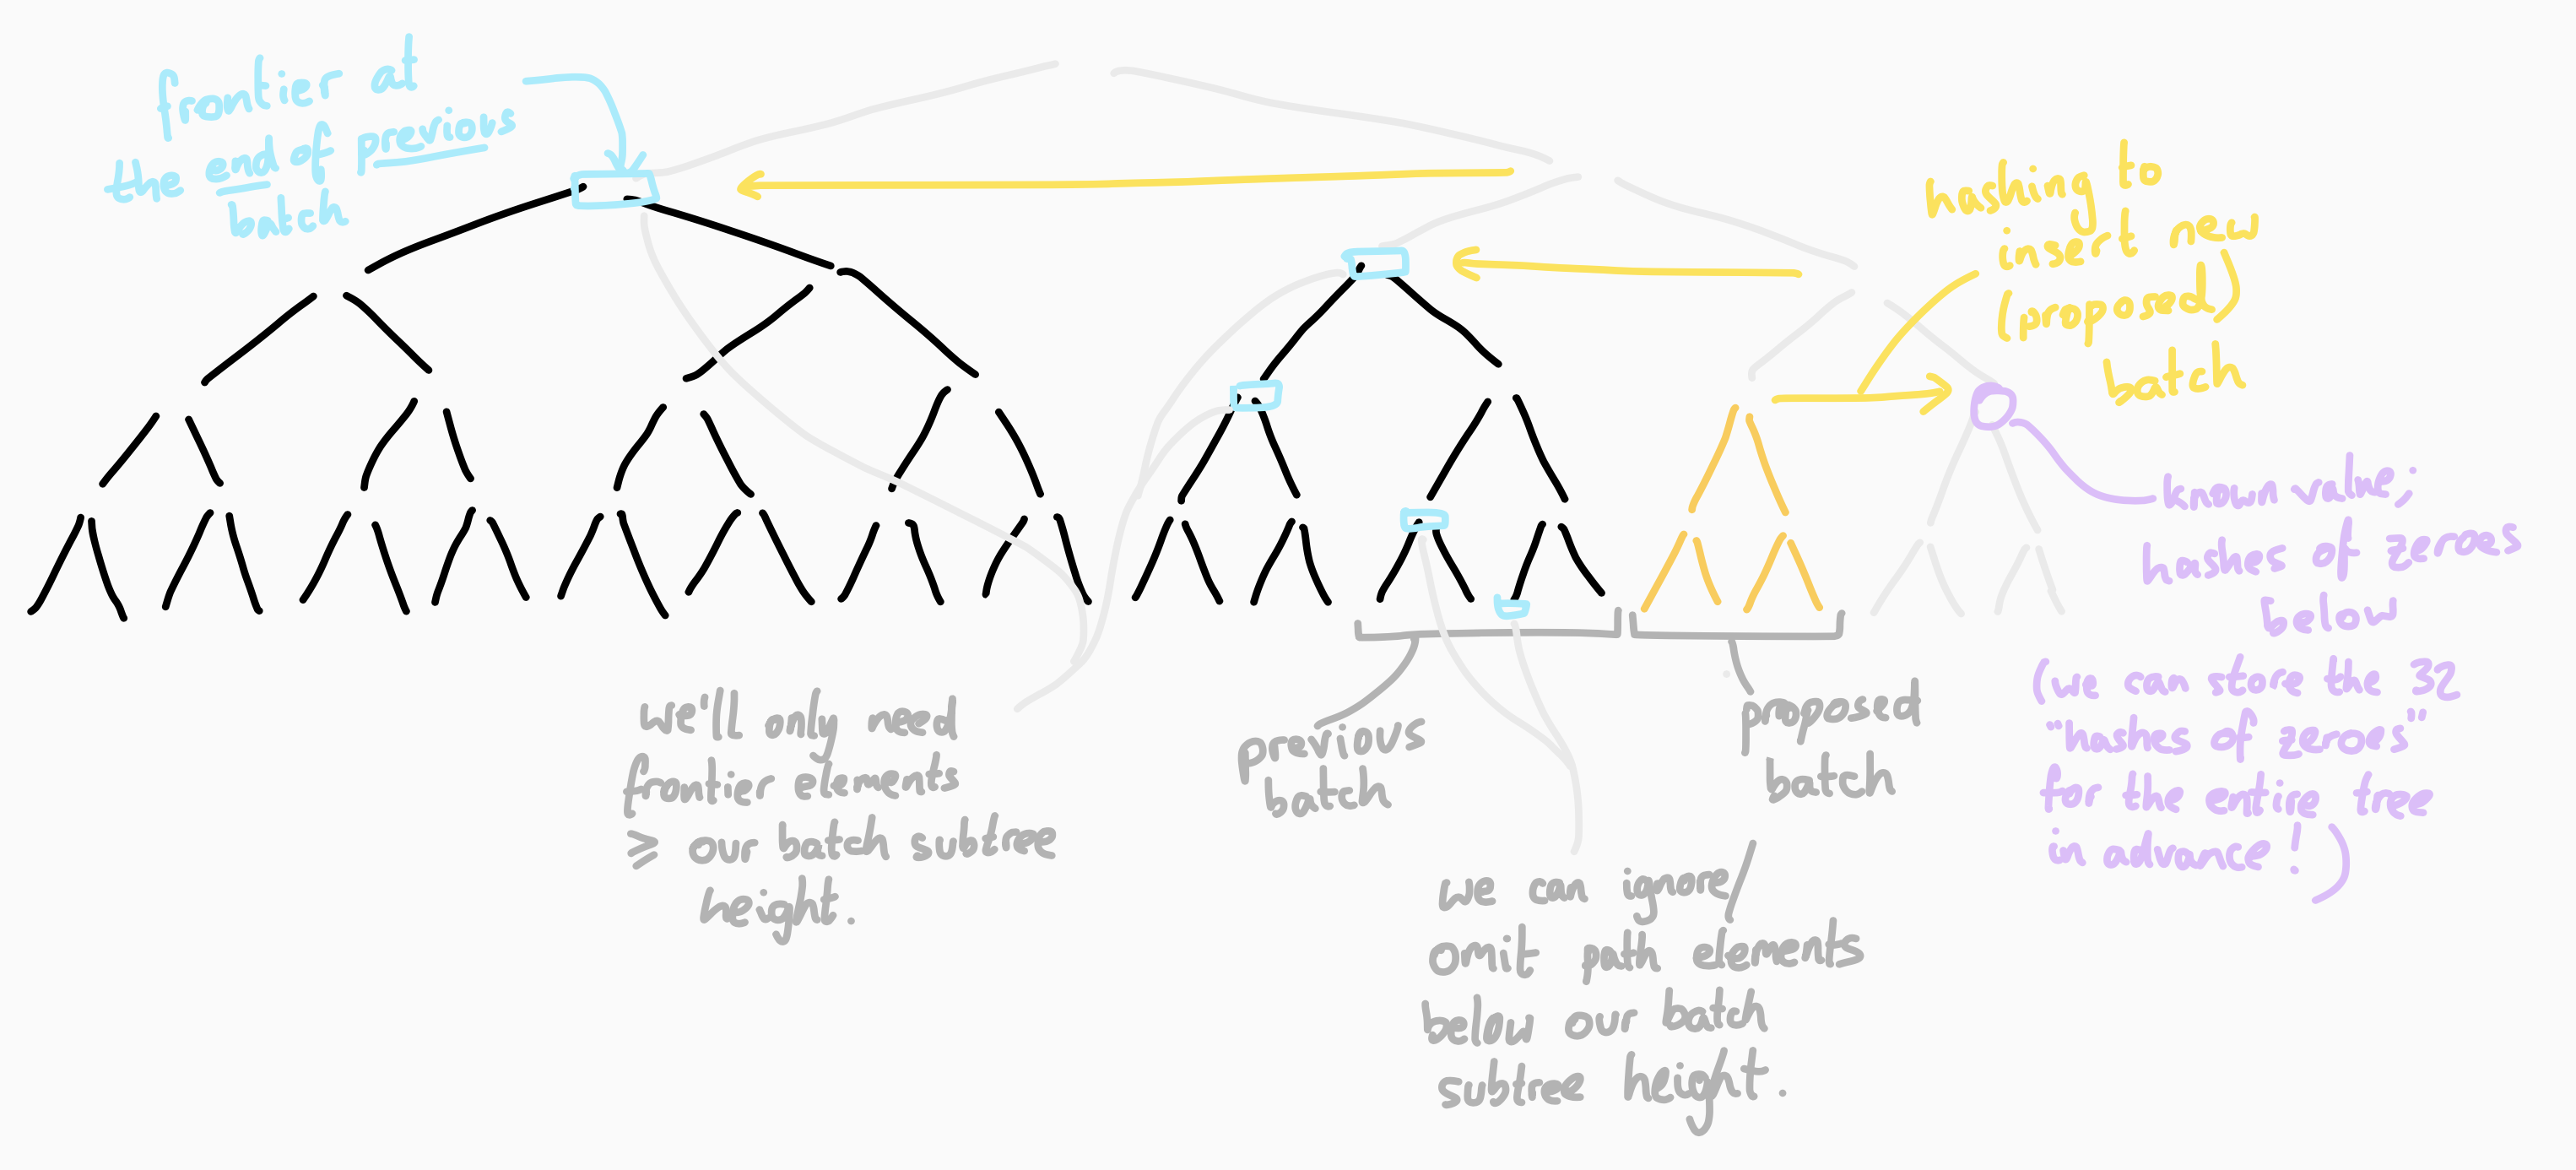 frontier at
the end of previous
batch
hashing to
insert new
(proposed)
batch
known value;
hashes of zeroes
below
(we can store the 32
"hashes of zeroes"
for the entire tree
in advance!)
we'll only need
frontier elements
⩾ our batch subtree
height.
previous
batch
proposed
batch
we can ignore/
omit path elements
below our batch
subtree height.